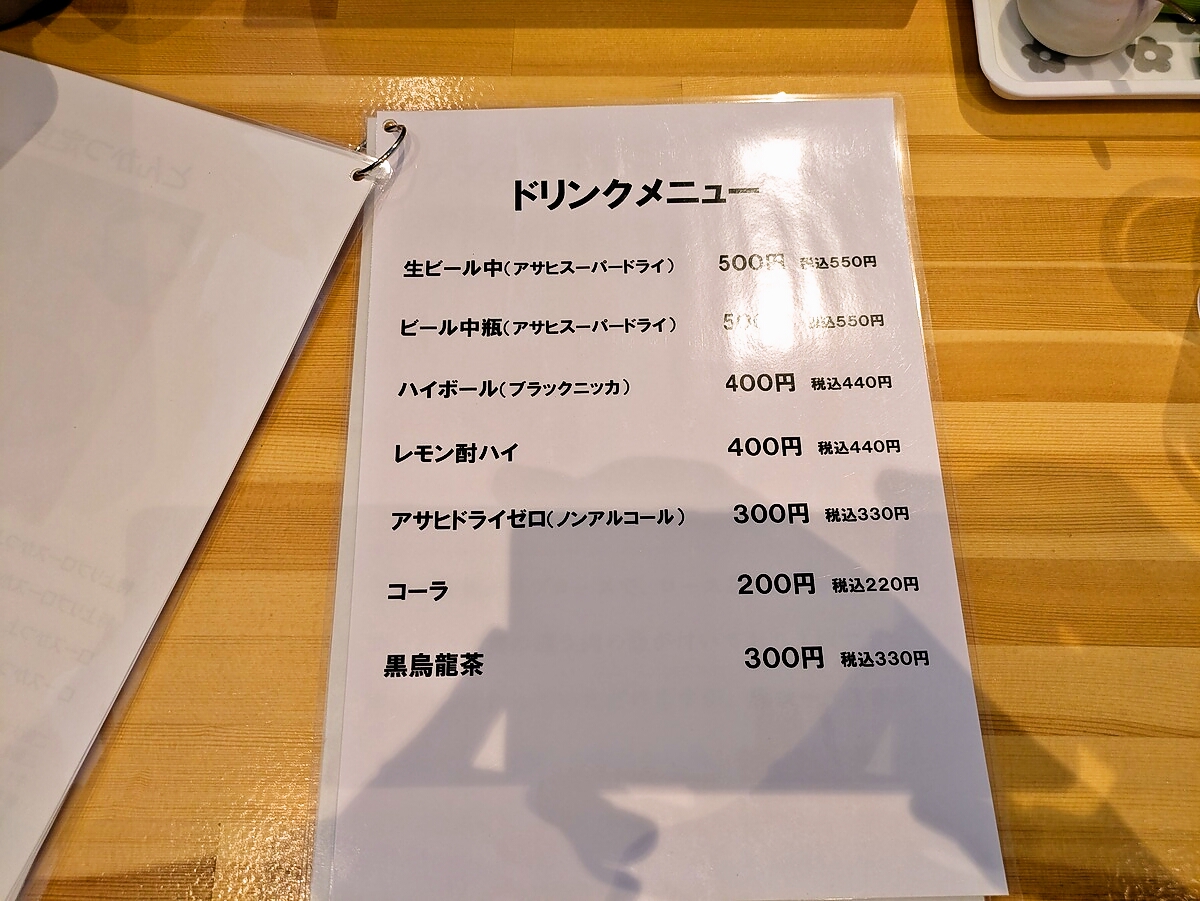 ドリンクメニュー
生ビール中(アサヒスーパードライ) 500円 税込550円
ビール中瓶(アサヒスーパードライ) 税込550円
ハイボール(ブラックニッカ) 400円 税込440円
レモン酎ハイ 400円 税込440円
アサヒドライゼロ(ノンアルコール) 300円 税込330円
コーラ 200円 税込220円
黒烏龍茶 300円 税込330円